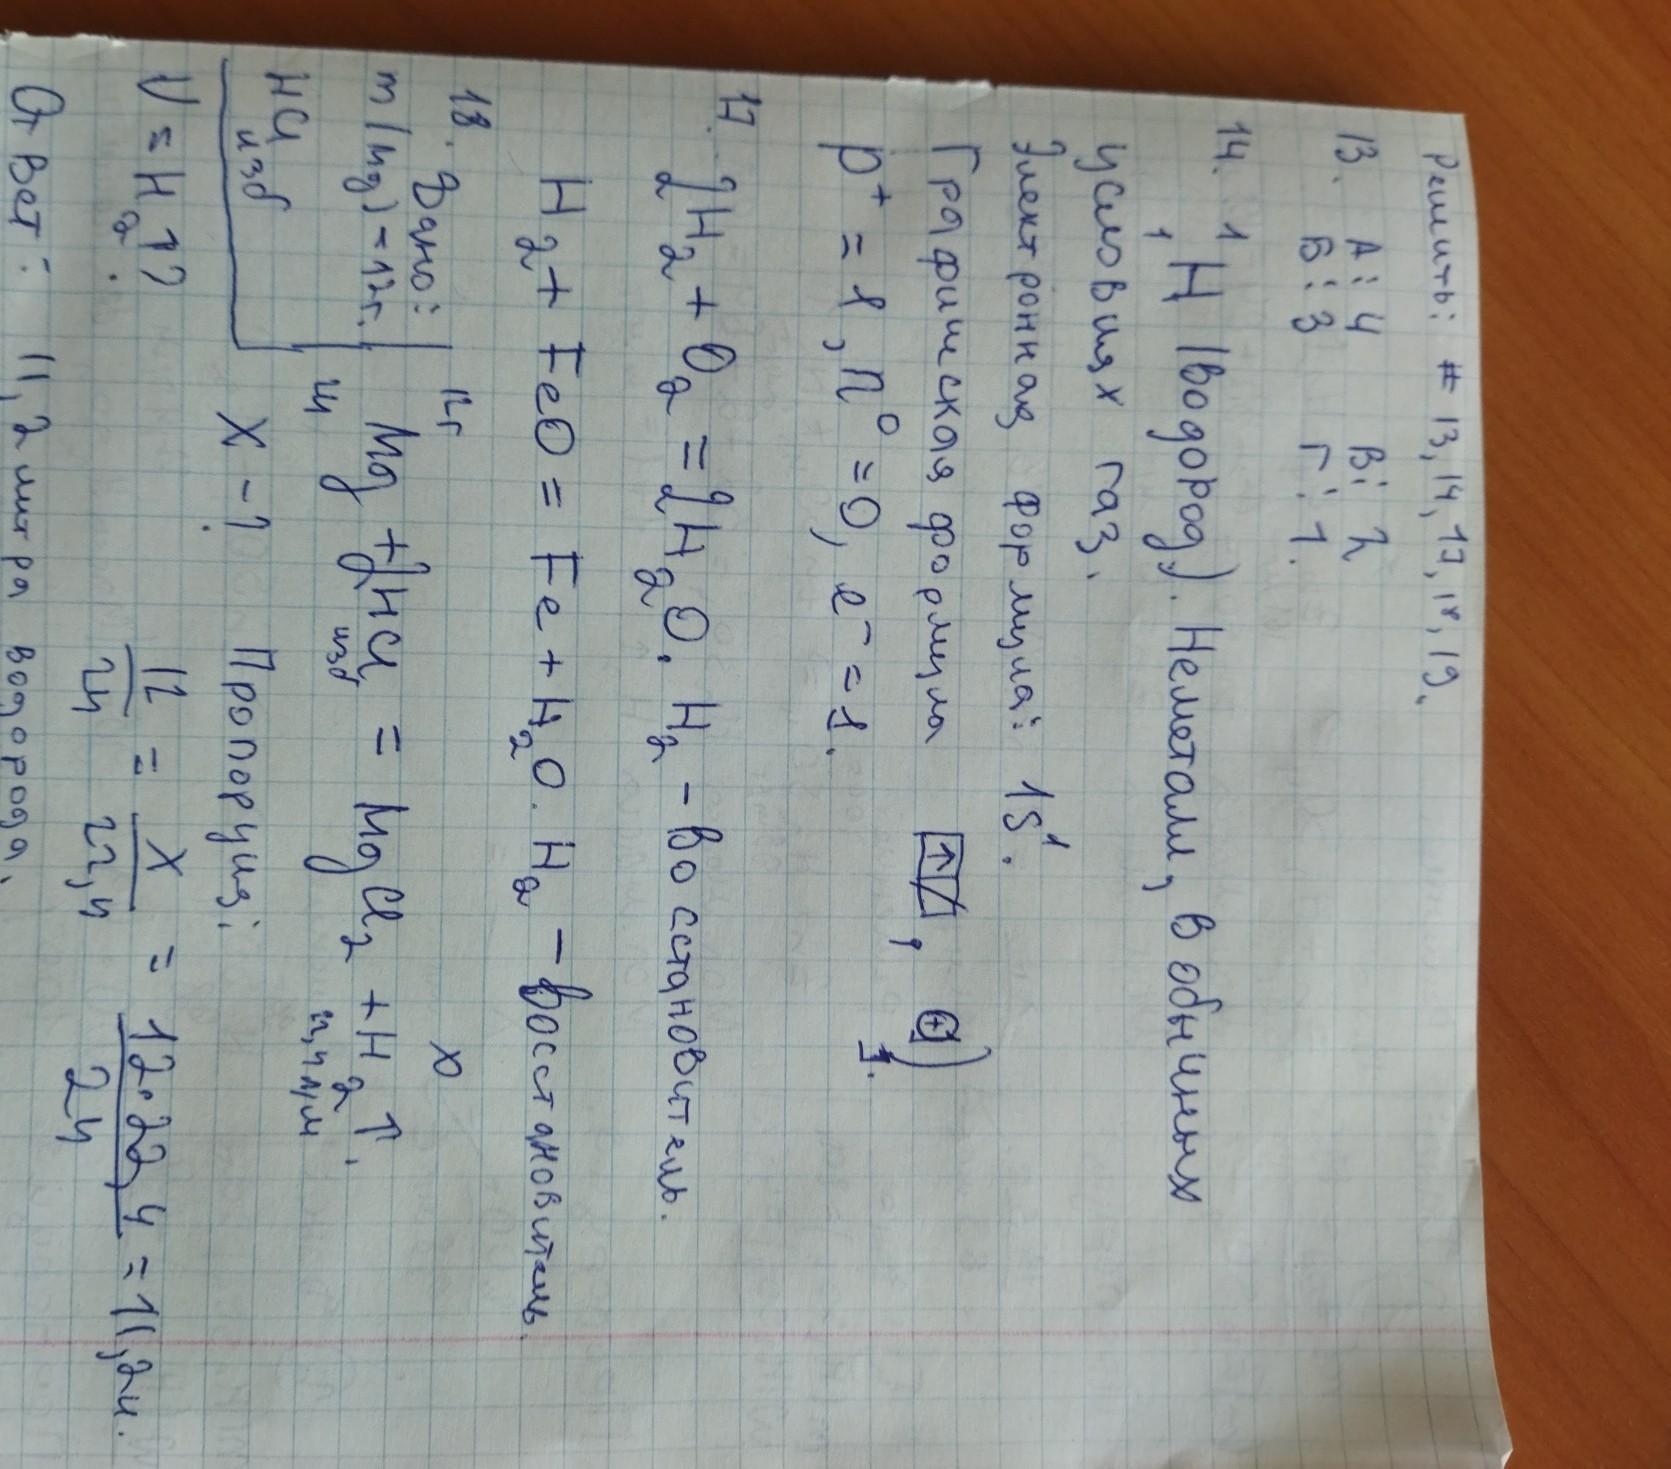 Решить: # 13, 14, 17, 18, 19.
13. А: 4 В: 2
Б: 3 Г: 1.
14. ¹₁H (водород). Неметалл, в обычных
условиях газ.
Электронная формула: 1S¹.
Графическая формула ↑, (+) 1.
p⁺ = 1, n⁰ = 0, e⁻ = 1.
17. 2H₂ + O₂ = 2H₂O. H₂ - восстановитель.
H₂ + FeO = Fe + H₂O. H₂ - восстановитель.
18. Дано: 12г x
m(Mg) = 12г. Mg + 2HCl = MgCl₂ + H₂↑.
HCl изб 24 изб 22,4 л/м
V = H₂↑? X - ? Пропорция:
12/24 = x/22,4 = 12·22,4/24 = 11,2л.
Ответ: 11,2 литра водорода.